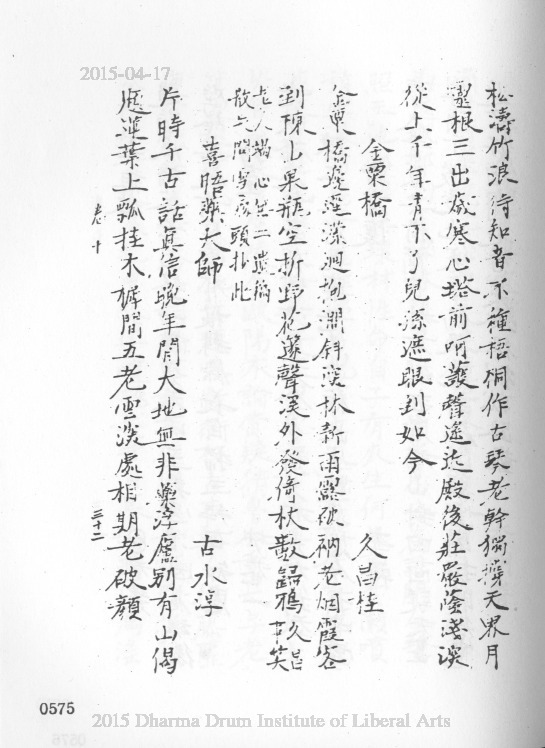 2015-04-17
松濤竹浪待知音不種梧桐作古琴老幹獨撐天界月
靈根三出歲寒心塔前呵護聲遙遠殿後莊嚴蔭淺深
從上千年青不了兒孫遮眼到如今
金粟橋 久昌桂
金粟橋邊溼藻迴 澗斜深林新雨露破衲老烟霞客
到陳山果瓶空折野花遂聲溪外發倚杖數歸鴉久昌
老人 心 二遺稿
故 問字 頭抄此
喜晤藥大師 古水淳
片時千古話真信晚年閒大地無非藥浮廬別有山偈
成蓮葉上瓢挂木樨間五老雲深處相期老破顏
卷十 三十二
0575
2015 Dharma Drum Institute of Liberal Arts